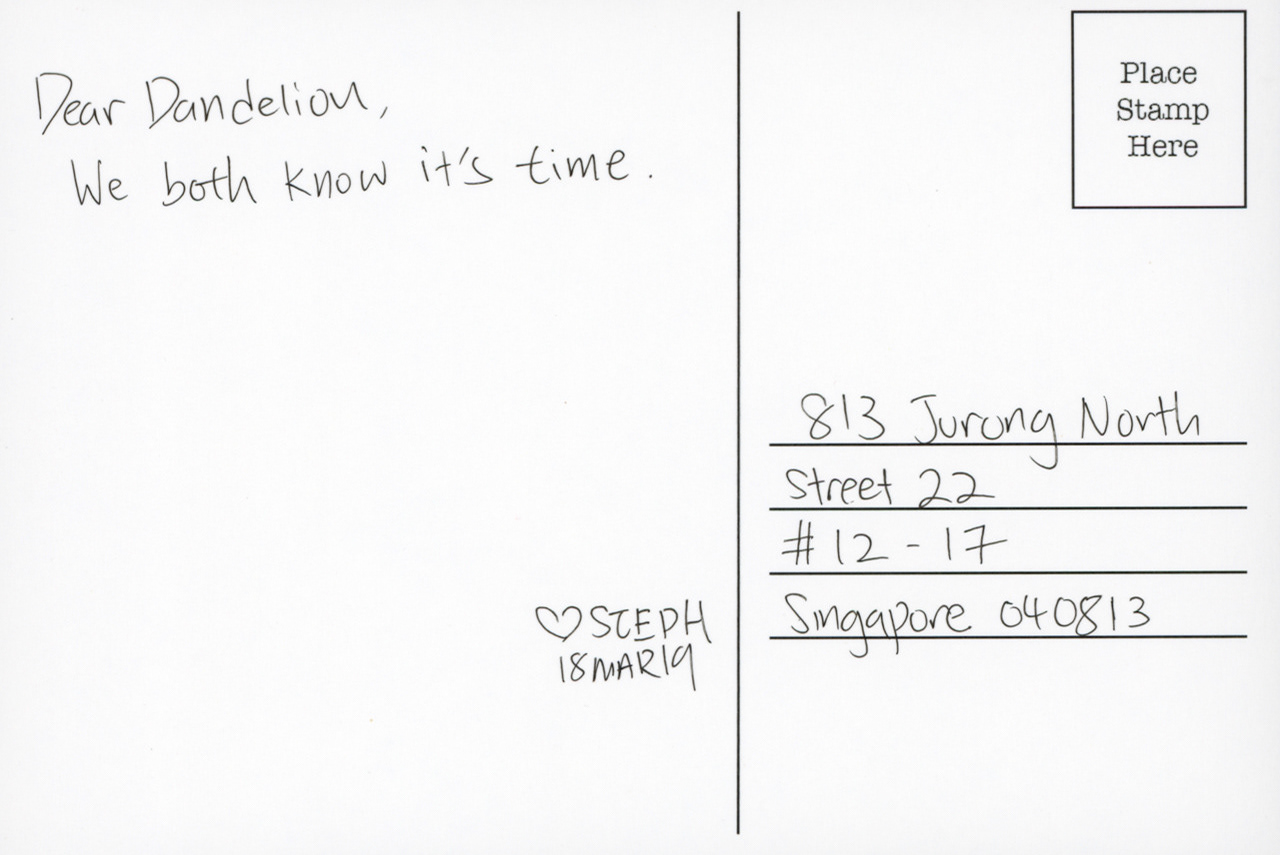 Dear Dandelion,
We both know it's time.
♡ STEPH
18MAR19
Place
Stamp
Here
813 Jurong North
Street 22
#12-17
Singapore 040813